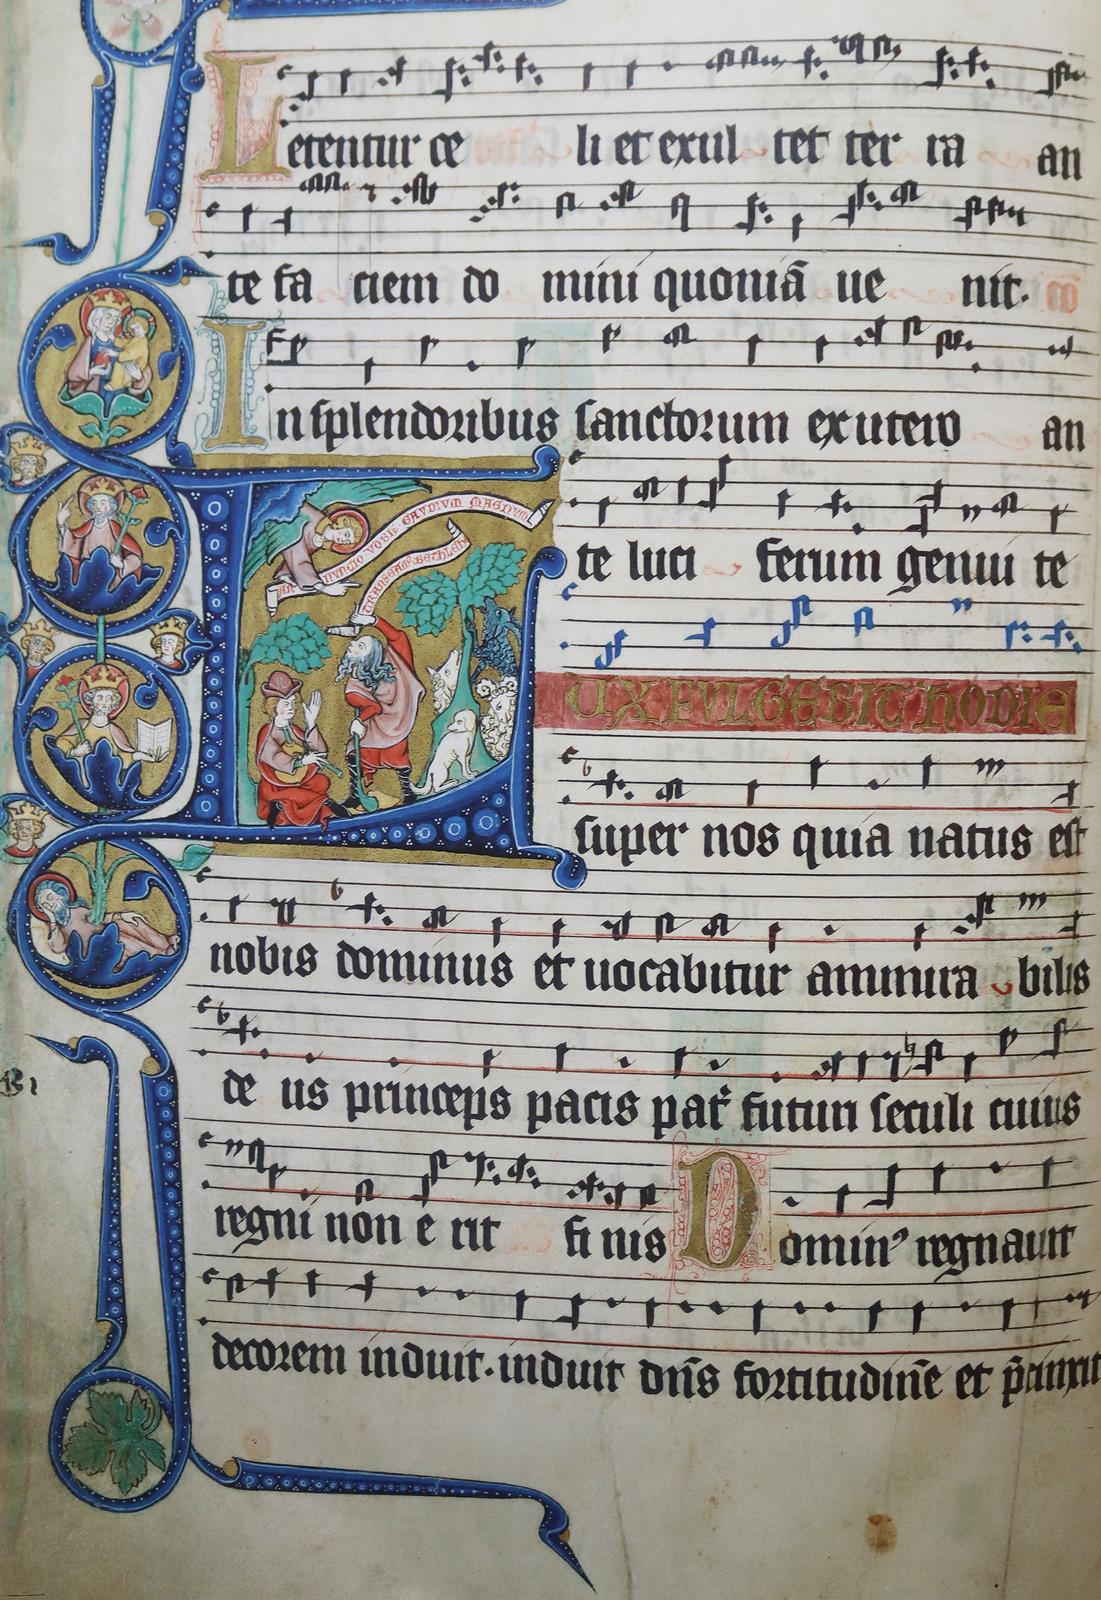 Letentur ce li et exul tet ter ra an
te fa ciem do mini quoniā ue nit.
In splendoribus sanctorum ex utero an
AN NVNCIO VOBIS GAVDIVM MAGNVM
TRANSEAM BETHLEH
te luci ferum genui te
LUX FVLGEBIT hODIE
super nos quia natus est
nobis dominus et uocabitur ammira bilis
de us princeps pacis pat᷑ futuri seculi cuius
regni non e rit fi nis Dominꝰ regnauit
decorem induit. induit dn̄s fortitudinē et p̄cinxit